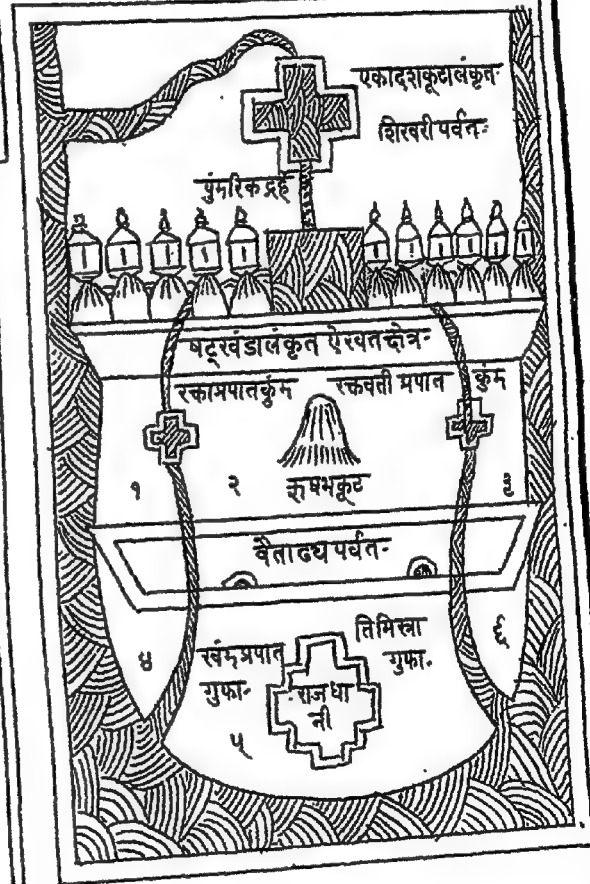 एकादशकूटालंकृत-
शिखरी पर्वत-
पुंमरिकद्रह
षट्खंडालंकृत ऐरवतक्षेत्र-
रक्ताप्रपातकुंम रक्तवती प्रपात कुंम
१ २ ऋषभकूट ३
वैताढ्य पर्वत-
४ खंमप्रपात तिमिस्रा ६
गुफा- गुफा-
राजधा
नी
५